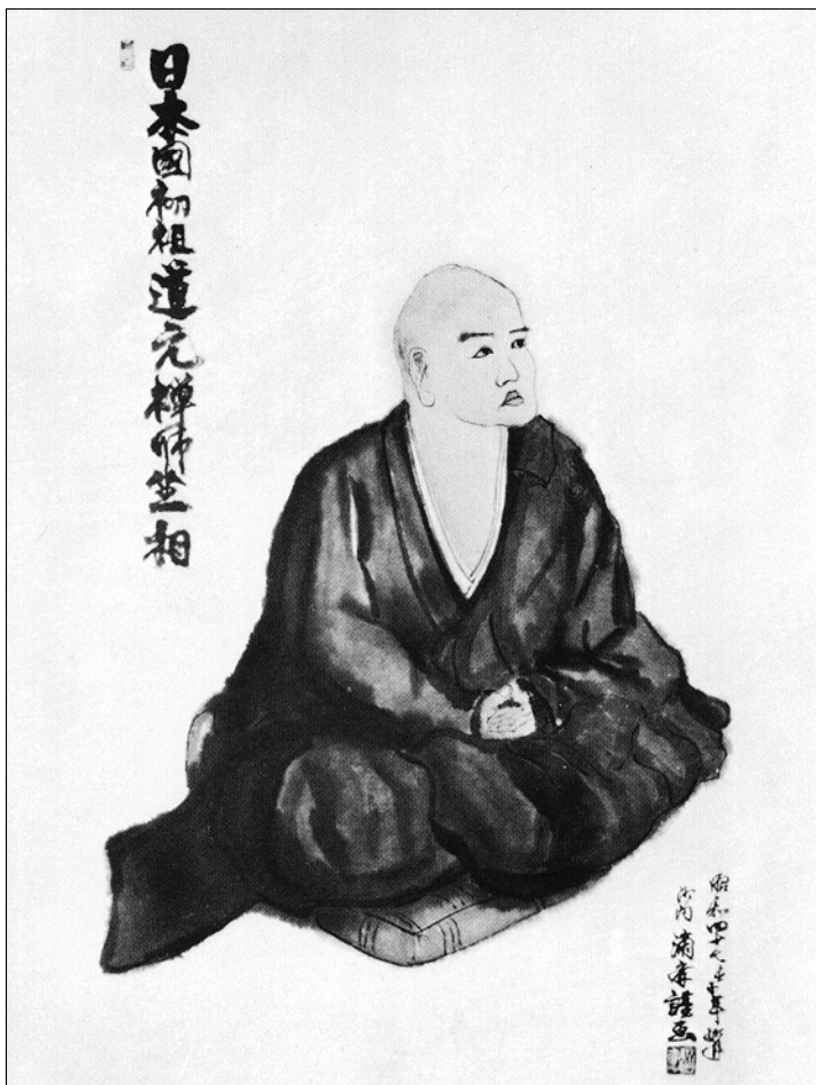 日本國初祖道元禅师坐相
昭和四十七年
沙門 謹画